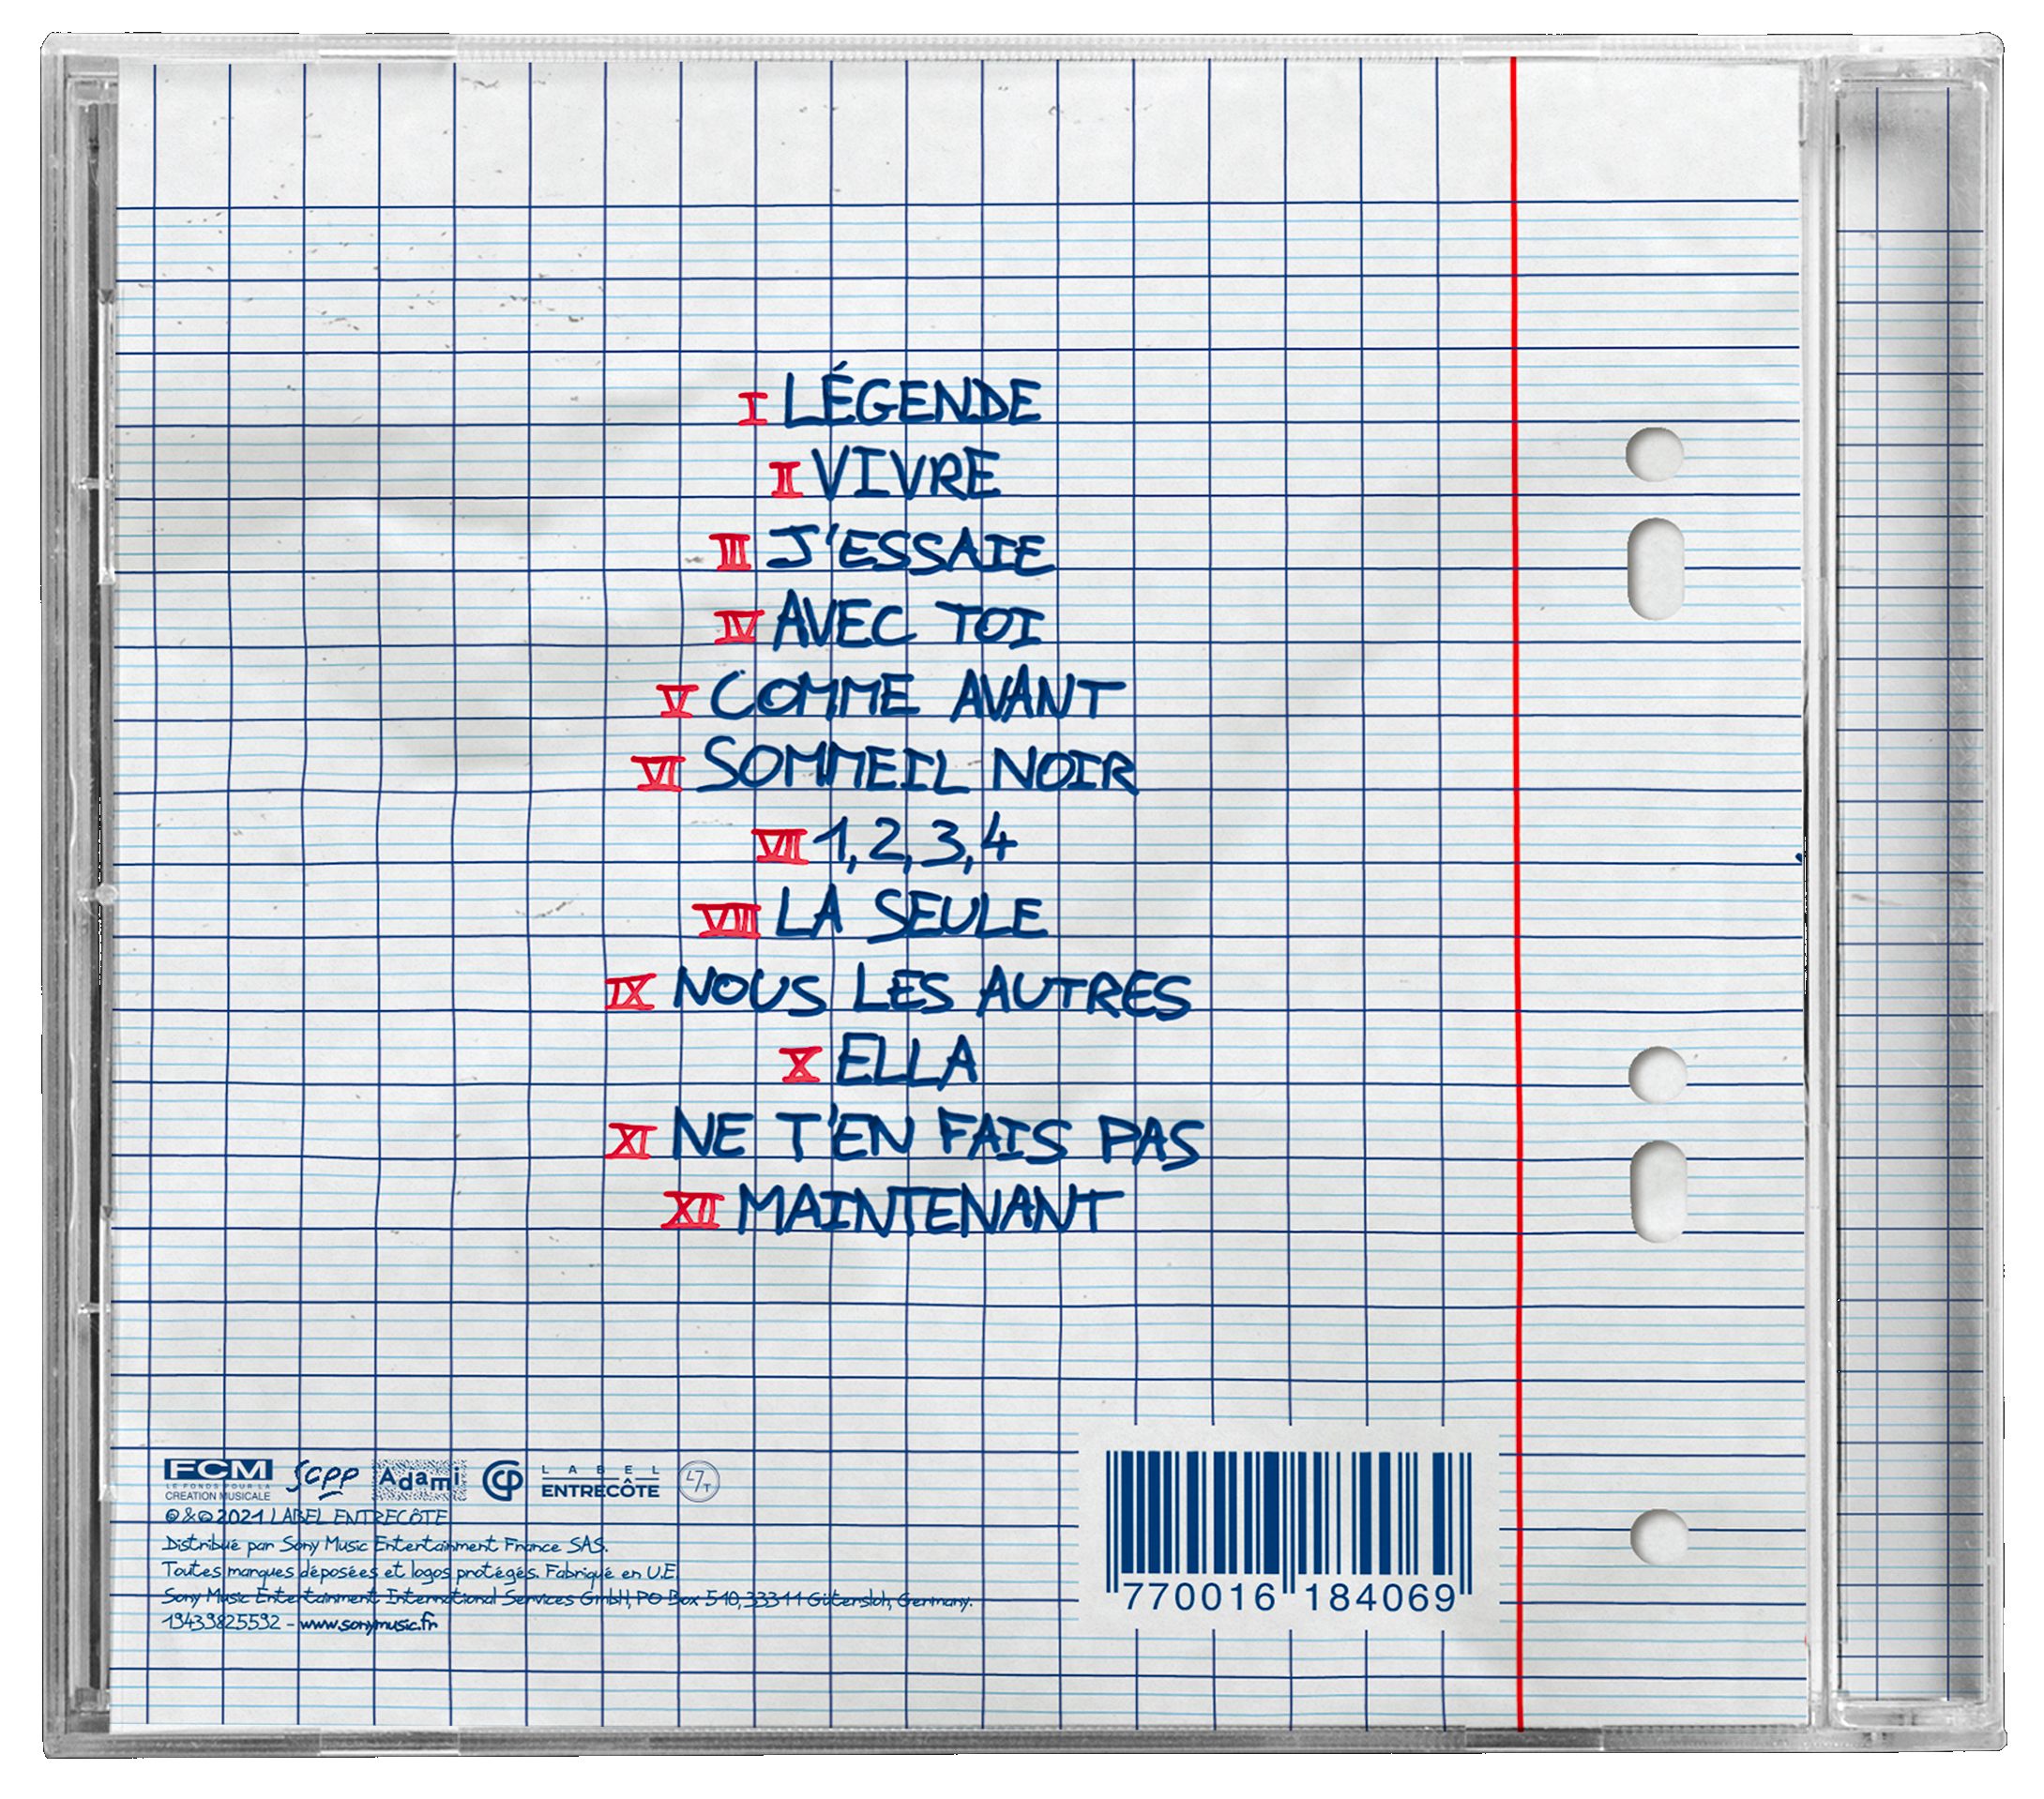 I LÉGENDE
II VIVRE
III J'ESSAIE
IV AVEC TOI
V COMME AVANT
VI SOMMEIL NOIR
VII 1,2,3,4
VIII LA SEULE
IX NOUS LES AUTRES
X ELLA
XI NE T'EN FAIS PAS
XII MAINTENANT
FCM SCPP Adami CP LABEL ENTRECÔTE L7T
LE FONDS POUR LA
CREATION MUSICALE
℗ & © 2021 LABEL ENTRECÔTE
Distribué par Sony Music Entertainment France SAS.
Toutes marques déposées et logos protégés. Fabriqué en U.E.
Sony Music Entertainment International Services GmbH, PO Box 510, 33311 Gütersloh, Germany.
19439825592 - www.sonymusic.fr
770016 184069